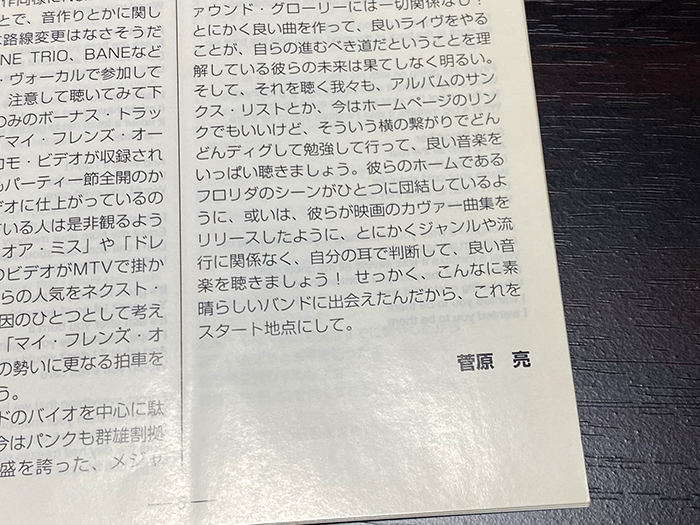 作同様にN
とで、音作りとかに関し
な路線変更はなさそうだ
NE TRIO、BANEなど
・ヴォーカルで参加して
、注意して聴いてみて下
のみのボーナス・トラッ
「マイ・フレンズ・オー
カモ・ビデオが収録され
もパーティー節全開のか
デオに仕上がっているの
ている人は是非観るよう
・オア・ミス」や「ドレ
のビデオがMTVで掛か
らの人気をネクスト・
因のひとつとして考え
「マイ・フレンズ・オ
の勢いに更なる拍車を
う。
ドのバイオを中心に駄
今はパンクも群雄割拠
盛を誇った、メジャ
ァウンド・グローリーには一切関係なし！
とにかく良い曲を作って、良いライヴをやる
ことが、自らの進むべき道だということを理
解している彼らの未来は果てしなく明るい。
そして、それを聴く我々も、アルバムのサン
クス・リストとか、今はホームページのリン
クでもいいけど、そういう横の繋がりでどん
どんディグして勉強して行って、良い音楽を
いっぱい聴きましょう。彼らのホームである
フロリダのシーンがひとつに団結しているよ
うに、或いは、彼らが映画のカヴァー曲集を
リリースしたように、とにかくジャンルや流
行に関係なく、自分の耳で判断して、良い音
楽を聴きましょう！ せっかく、こんなに素
晴らしいバンドに出会えたんだから、これを
スタート地点にして。
菅原 亮